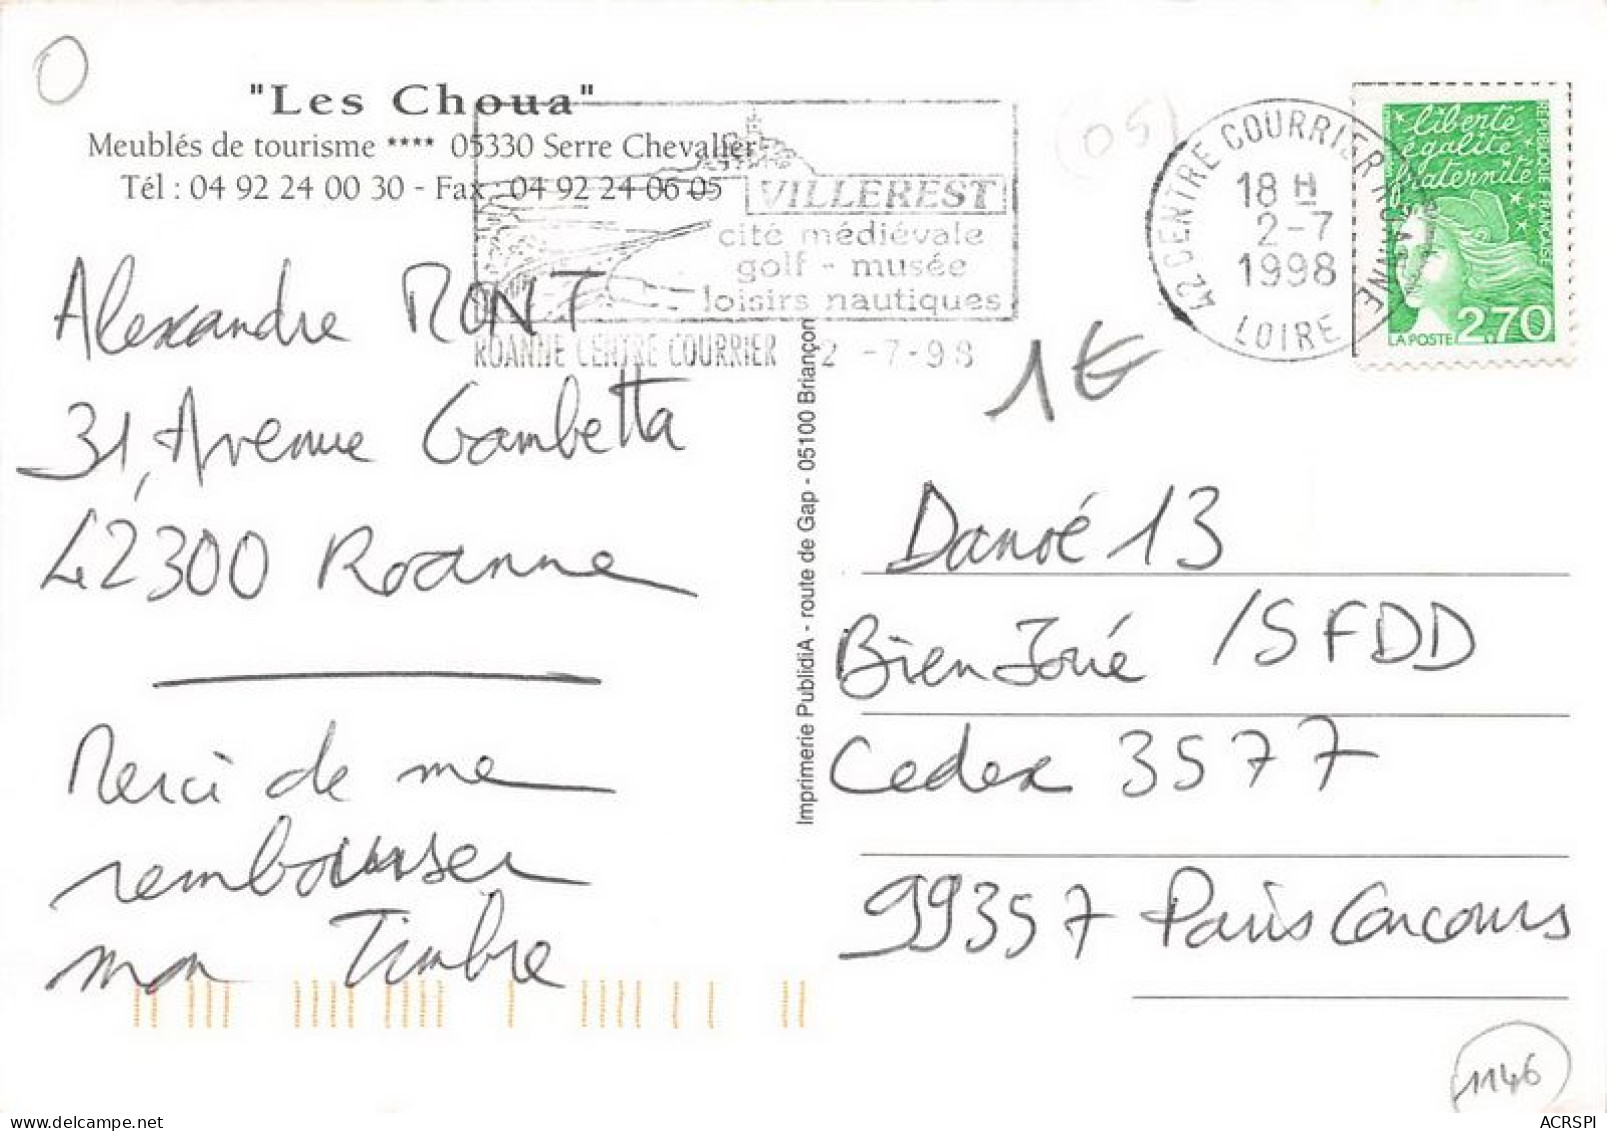 "Les Choua"
Meublés de tourisme **** 05330 Serre Chevalier
Tél : 04 92 24 00 30 - Fax : 04 92 24 06 05
VILLEREST
cité médiévale
golf - musée
loisirs nautiques
ROANNE CENTRE COURRIER 2 -7-98
05
42 CENTRE COURRIER ROANNE
18 H
2-7
1998
LOIRE
liberté
égalité
fraternité
REPUBLIQUE FRANÇAISE
LA POSTE 2,70
1€
Alexandre MONT
31, Avenue Gambetta
42300 Roanne
Merci de me
rembourser
mon Timbre
Imprimerie PublidiA - route de Gap - 05100 Briançon
Danoé 13
Bien Joué /SFDD
Cedex 3577
99357 Paris Concours
1146
ACRSPI